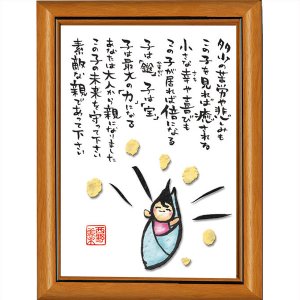 多少の苦労や悲しみも
この子を見れば癒される
小さな幸や喜びも
この子が居れば倍になる
子は「鎹」子は「宝」
子は最大の「力」になる
あなたは大人から親になりました
この子の未来を守って下さい
素敵な親であって下さい